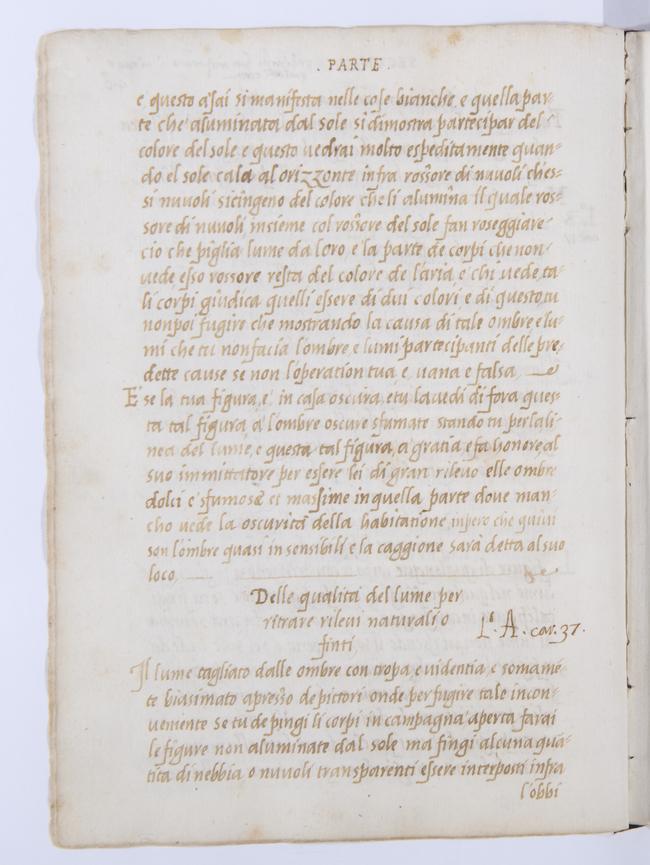 . PARTE .
e questo assai si manifesta nelle cose bianche, e quella par-
te che aluminata dal sole si dimostra partecipar del
colore del sole e questo vedrai molto espeditamente quan-
do el sole cala al orizzonte infra rossore di nuvoli ches-
si nuvoli si tingeno del colore che li alumina il quale ros-
sore di nuvoli insieme col rossore del sole fan roseggiare
cio che piglia lume da loro e la parte de corpi che non
vede esso rossore resta del colore de l'aria e chi vede ta-
li corpi giudica quelli essere di dui colori e di questo tu
non poi fugire che mostrando la causa di tale ombre e lu-
mi che tu non facia l'ombre, e lumi participanti delle pre-
dette cause se non l'operation tua e, vana e falsa.
E se la tua figura, e' in casa oscura, e tu la vedi di fora ques-
ta tal figura, a l'ombre oscure sfumate stando tu per la li-
nea del lume, e questa tal figura, a gratia e fa honore al
suo immittatore per essere lei di gran rilevo elle ombre
dolci e sfumose et massime in quella parte dove man-
cho vede la oscurità della habitatione inpero che quivi
son l'ombre quasi insensibili e la caggione sarà detta al suo
loco.
Delle qualita del lume per
ritrare rilevi naturali o
finti.
Lº A. car. 37.
Il lume tagliato dalle ombre con tropa, evidentia, e somamē-
te biasimato apresso de pittori onde per fugire tale incon-
veniente se tu depingi li corpi in campagna aperta farai
le figure non aluminate dal sole ma fingi alcuna quā-
tità di nebbia o nuvoli transparenti essere interposti infra
l'obbi